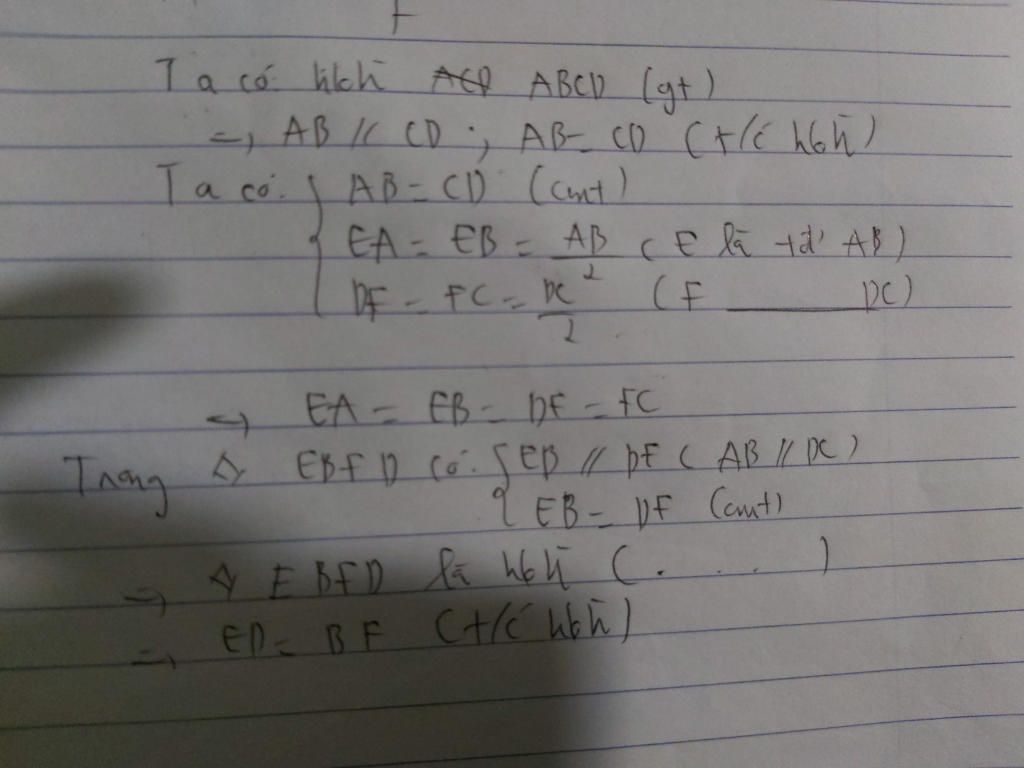 F
Ta có hbh ACD ABCD (gt)
=> AB // CD ; AB = CD (t/c hbh)
Ta có: { AB = CD (cmt)
EA = EB = AB/2 (E là tđ' AB)
DF = FC = DC/2 (F ______ DC)
=> EA = EB = DF = FC
Trong ◇ EBFD có: { EB // DF (AB // DC)
EB = DF (cmt)
=> ◇ EBFD là hbh (. . . .)
=> ED = BF (t/c hbh)